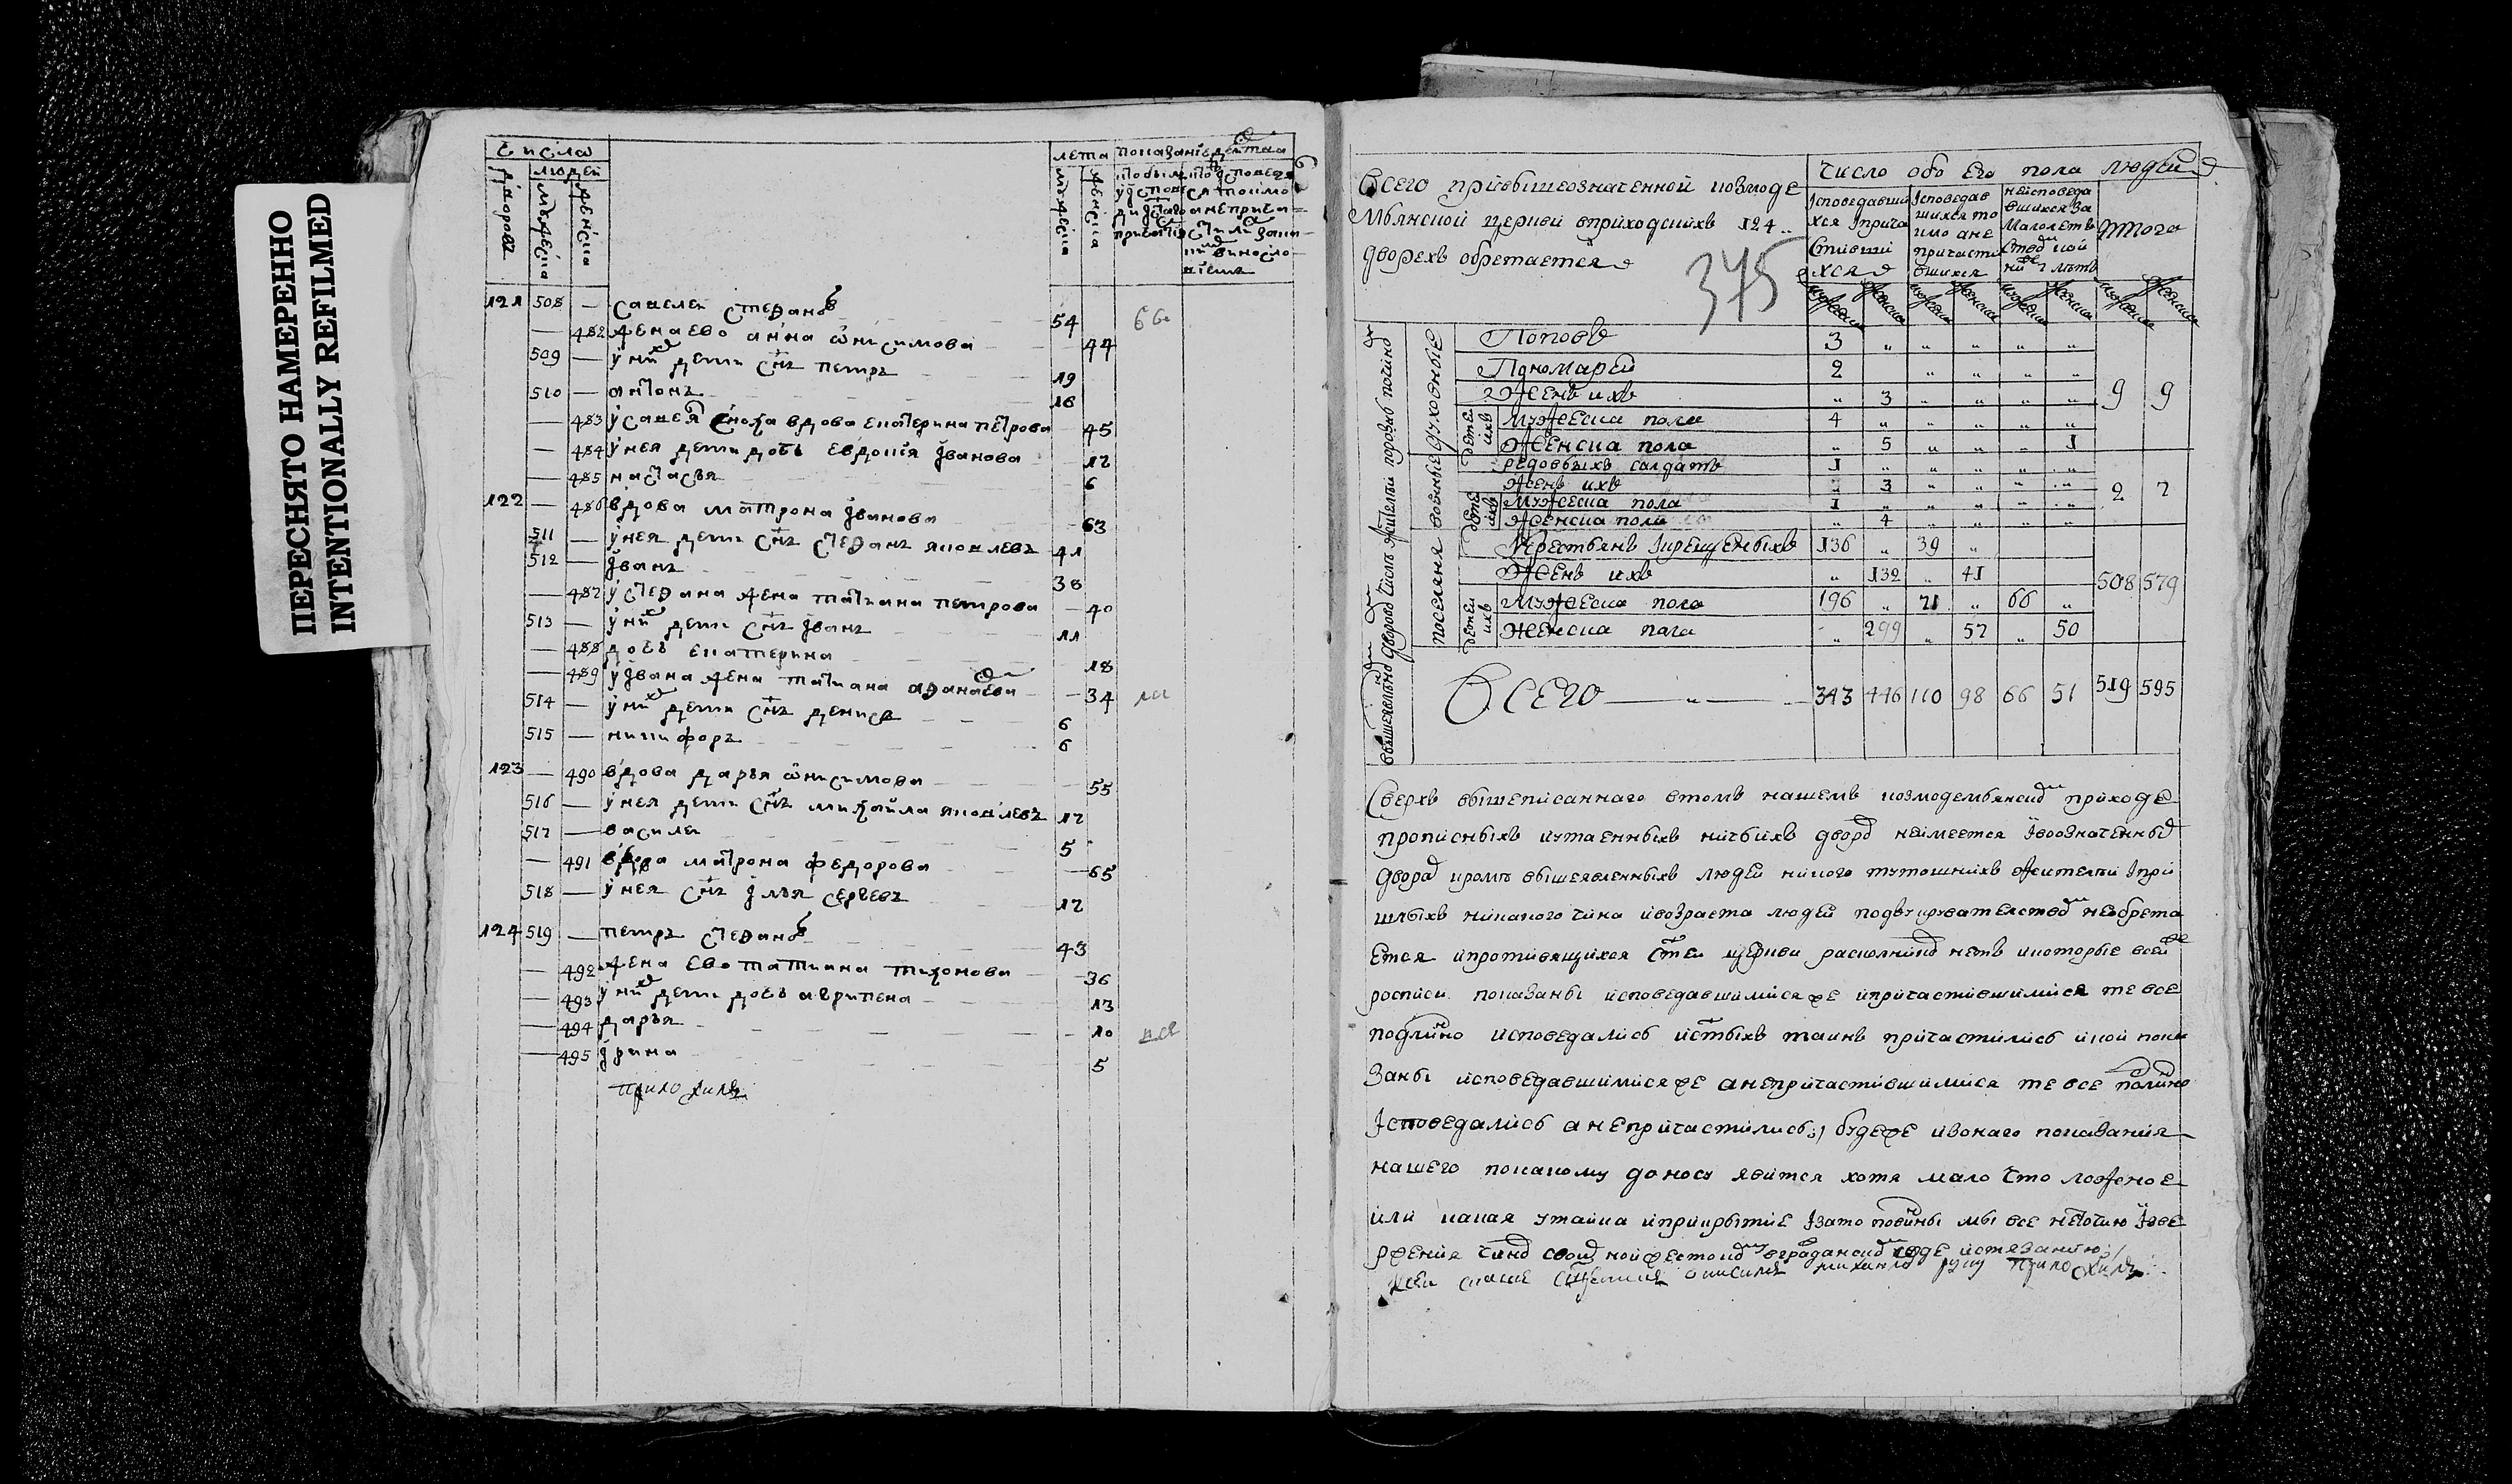 ПЕРЕСНЯТО НАМЕРЕННО
INTENTIONALLY REFILMED
число
людей
дворовъ
мужеска
женска
лета
мужеска
женска
121 508 — савелеи стеѳановъ 54
— 482 жена ево анна ѡнисимова 44
509 — у них дети снъ петръ 19
510 — антонъ 16
— 483 у савея сноха вдова екатерина петрова 45
— 484 у нея дети дочь евдокїя іванова 12
— 485 настасья 6
122 — 486 вдова матрона іванова 63
511 — у нея дети снъ стеѳанъ яковлевъ 41
512 — іванъ 36
— 487 у стеѳана жена татиана петрова 40
513 — у них дети снъ іванъ 11
— 488 дочь екатерина 18
— 489 у івана жена татиана аѳанасева 34
514 — у них дети снъ денисъ 6
515 — никифоръ 6
123 — 490 вдова дарья ѡнисимова 55
516 — у нея дети снъ михайла яковлевъ 17
517 — василеи 5
— 491 вдова матрона федорова 65
518 — у нея снъ ілья сергѣевъ 17
124 519 — петръ стеѳановъ 43
— 492 жена ево татиана тихонова 36
— 493 у них дети дочь агрипена 13
— 494 дарья 10
— 495 ірина 5
приложилъ
Всего при вышеозначенной козмоде
мьянской церкви вприходскихъ 124
дворехъ обретается
375
число обоего пола людей
Исповедавши
хся и прича
стивши
хся
Исповедав
шихся то
кмо а не
причасти
вшихся
неисповеда
вшихся за
малолетъ
ством
итого
духовные
Поповъ 3 „ „ „ „ „
Пономарей 2 „ „ „ „
Женъ ихъ „ 3 „ „ „ „ 9 9
детей ихъ
мужеска пола 4 „ „ „ „ „
женска пола „ 5 „ „ „ 1
военные
редовыхъ салдатъ 1 „ „ „ „ „
женъ ихъ „ 3 „ „ „ „ 2 7
детей ихъ
мужеска пола 1 „ „ „ „ „
женска пола „ 4 „ „ „ „
поселяня
крестьянъ 136 „ 39 „
женъ ихъ „ 132 „ 41 508 579
детей ихъ
мужеска пола 196 „ 71 „ 66 „
женска пола „ 299 „ 57 „ 50
Всего 343 446 110 98 66 51 519 595
Сверхъ вышеписаннаго втомъ нашемъ козмодемьянском приходе
прописныхъ и утаенныхъ ничьихъ дворов неимеется и вооозначенных
дворах кроме вышеявленныхъ людей никого тутошнихъ жителей и при
шлыхъ никакого чина и возраста людей под укрывателством необрета
ется и противящихся стеи церкви расколников нетъ и которые в сей
росписи показаны исповедавшимися же и причастившимися те все
подлинно исповедались и стыхъ таинъ причастились и кои пока
заны исповедавшимися же а непричастившимися те все подлинно
Исповедались а непричастились; буде же из онаго показания
нашего по какому доносу явится хотя мало что ложное
или какая утайка и прикрытие и зато повинны мы все неточию изве
ржения чинов своих но и жестоком вгражданском суде истязанию